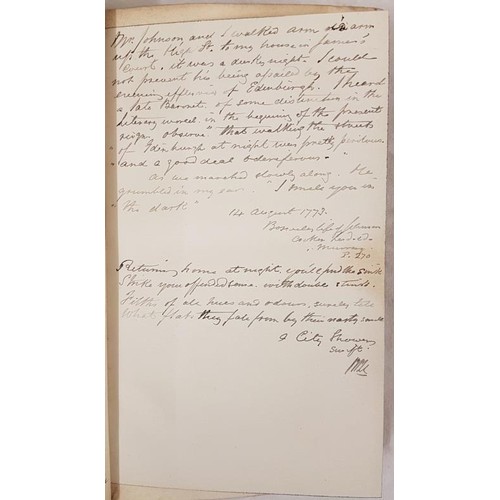 Mr. Johnson and I walked arm in arm
up the High St. to my house in James's
Court. it was a dusky night. I could
not prevent his being assailed by the
evening effluvia of Edinburgh. I heard
a late Baronet, of some distinction in the
literary world, in the beginning of the present
reign, observe "that walking the streets
of Edinburgh at night was pretty perilous
and a good deal odoriferous."
As we marched slowly along. He
grumbled in my ear. "I smell you in
the dark"
14 August 1773.
Boswell's life of Johnson
ed.
Murray
P. 270
Returning home at night, you'll find the sink
Strike your offended sense with double stink.
Filths of all hues and odours, seem to tell
What they sail from by their
City Showers
Swift.